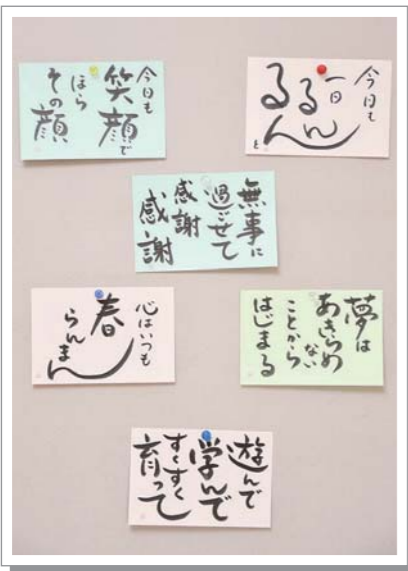 今日も
笑顔で
ほら
その顔
今日も
一日
るん
るん
と
無事に
過ごせて
感謝
感謝
心はいつも
春
らんまん
夢は
あきらめ
ない
ことから
はじまる
遊んで
学んで
すくすく
育って